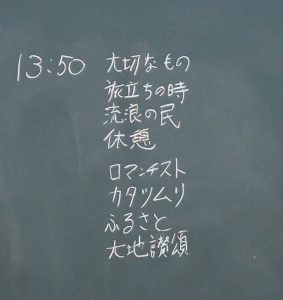 13:50 大切なもの
旅立ちの時
流浪の民
休憩
ロマンチスト
カタツムリ
ふるさと
大地讃頌